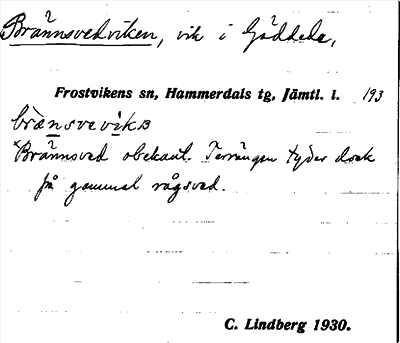 Brännsvedviken, vik i Gäddede,
Frostvikens sn, Hammerdals tg, Jämtl. l. 193
brænsvevikɞ
*Brännsved obekant. Terrängen tyder dock
på gammal rågsved.
C. Lindberg 1930.